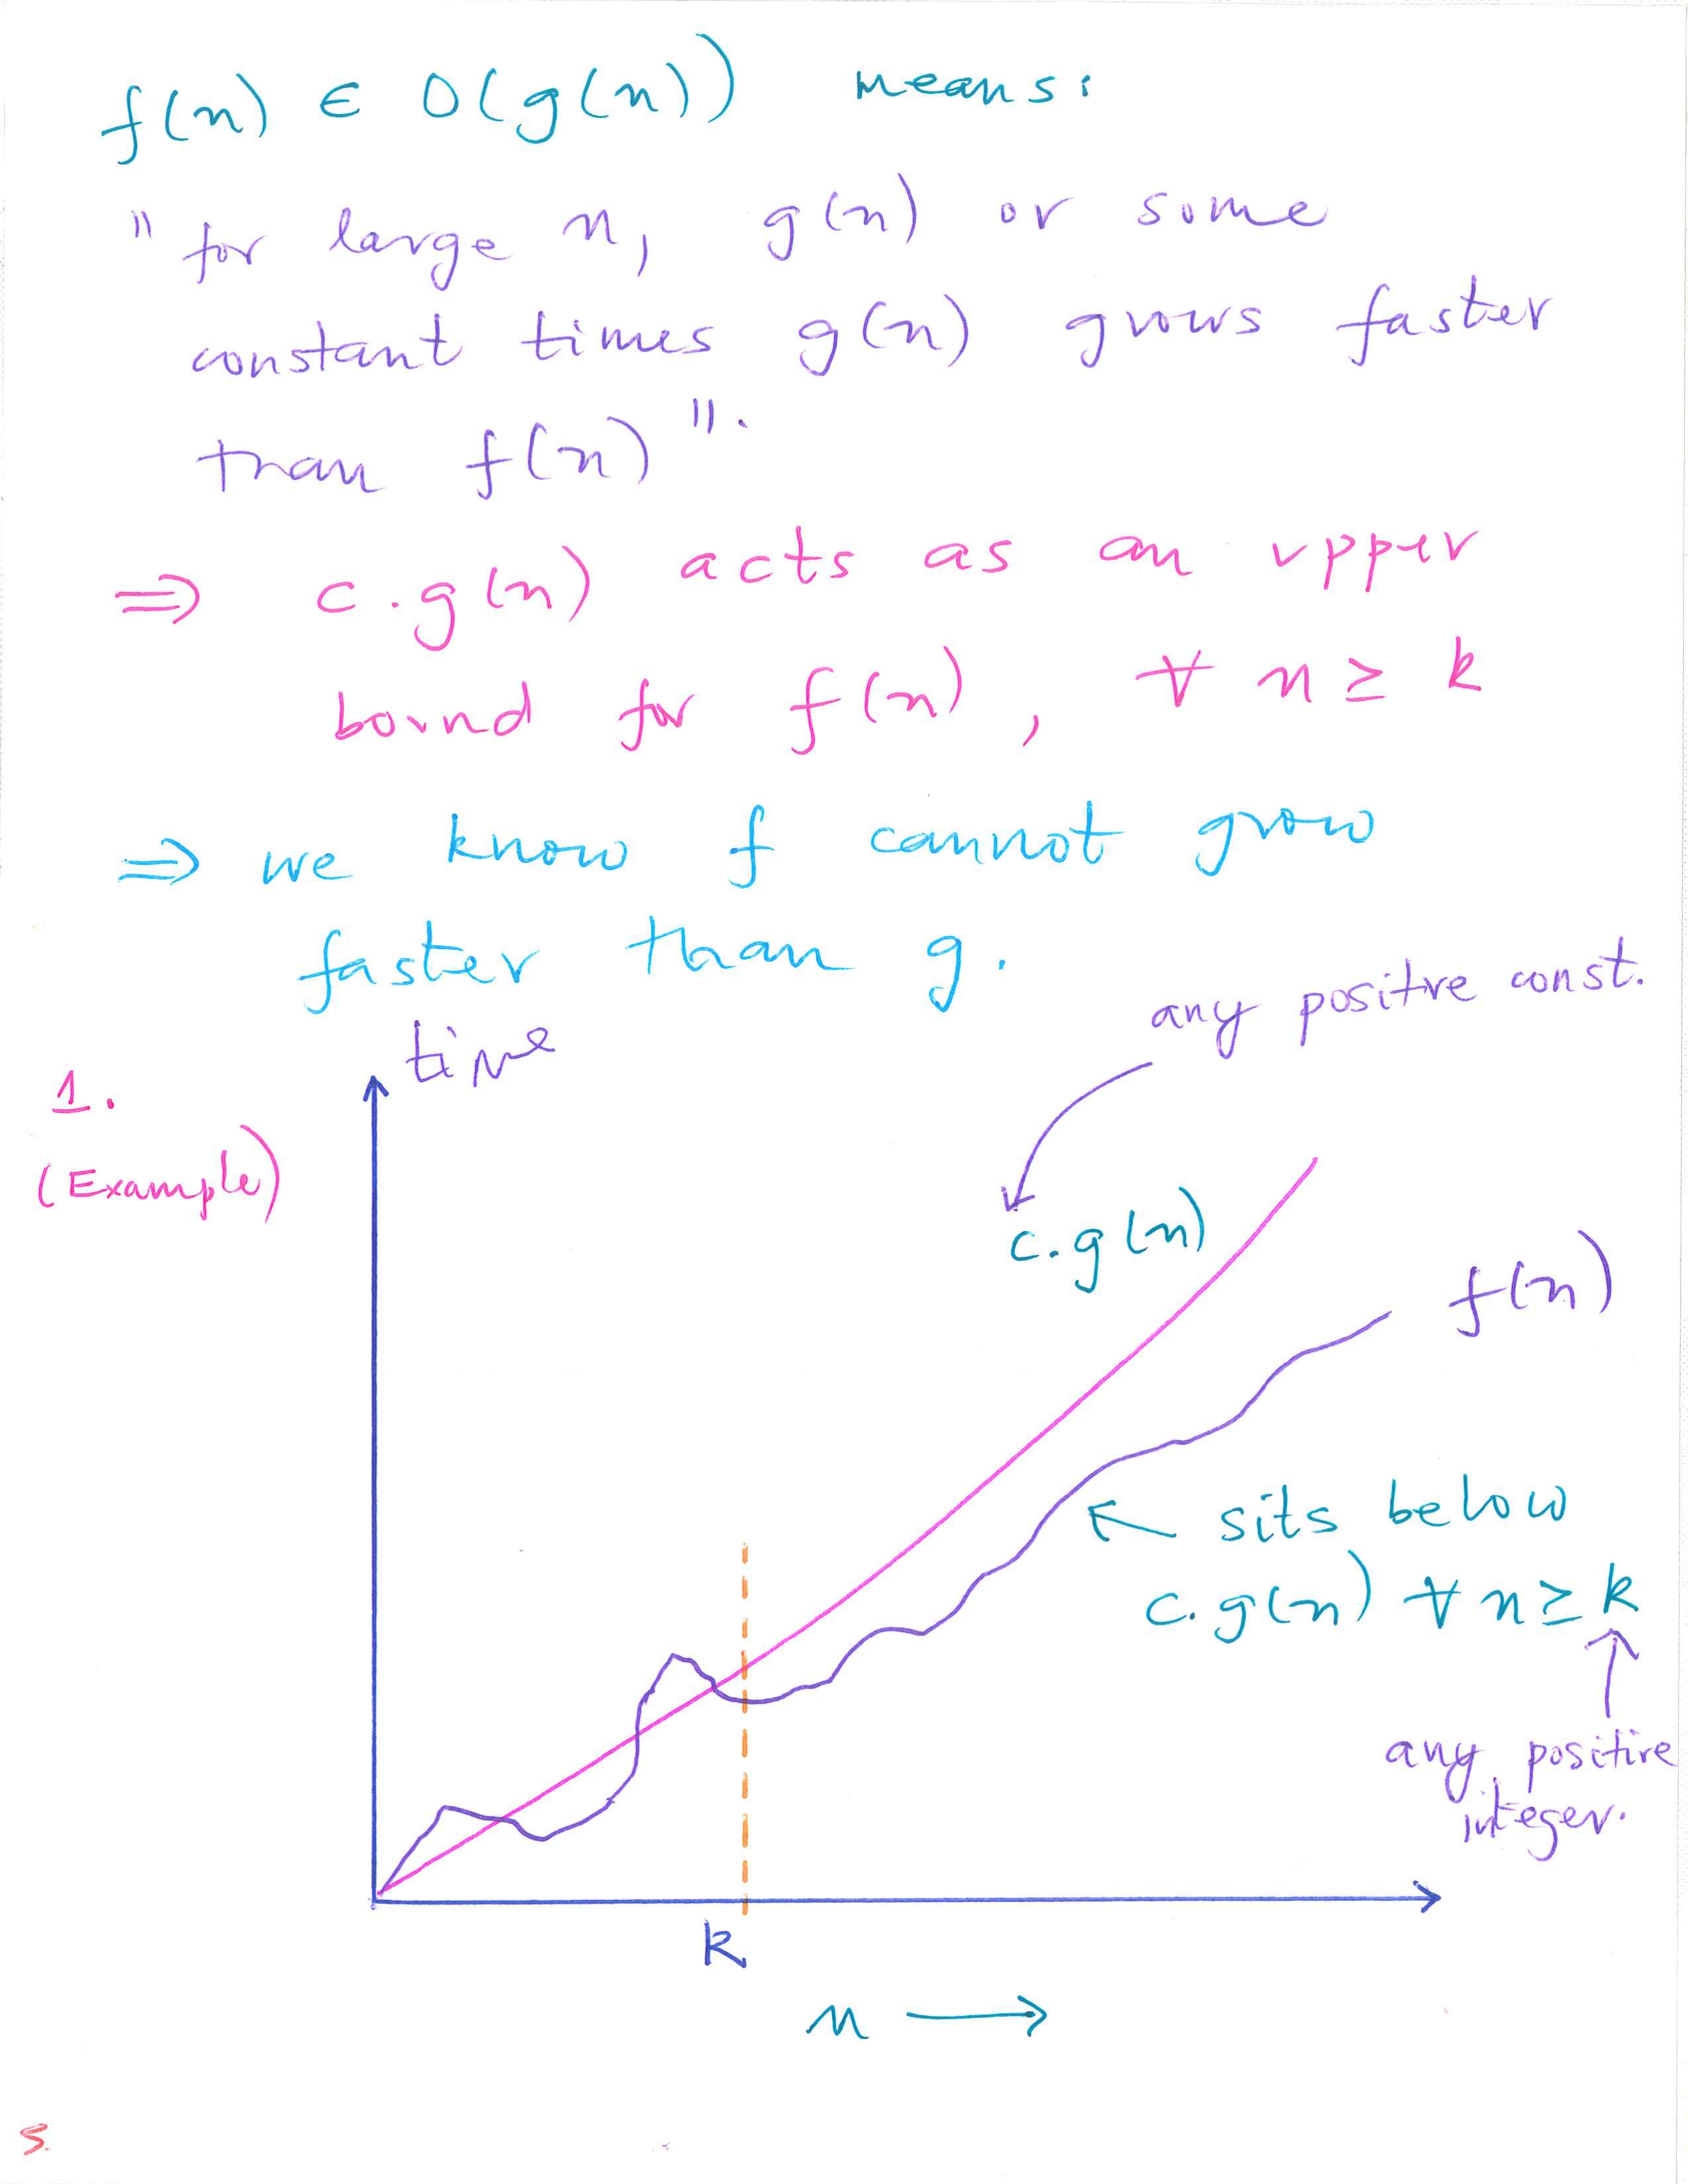 f(n) ∈ O(g(n)) means:
"for large n, g(n) or some
constant times g(n) grows faster
than f(n)".
⇒ c.g(n) acts as an upper
bound for f(n), ∀ n ≥ k
⇒ we know f cannot grow
faster than g.
any positive const.
time
1.
(Example)
c.g(n)
f(n)
← sits below
c.g(n) ∀ n ≥ k
any positive
integer.
k
n →
5.